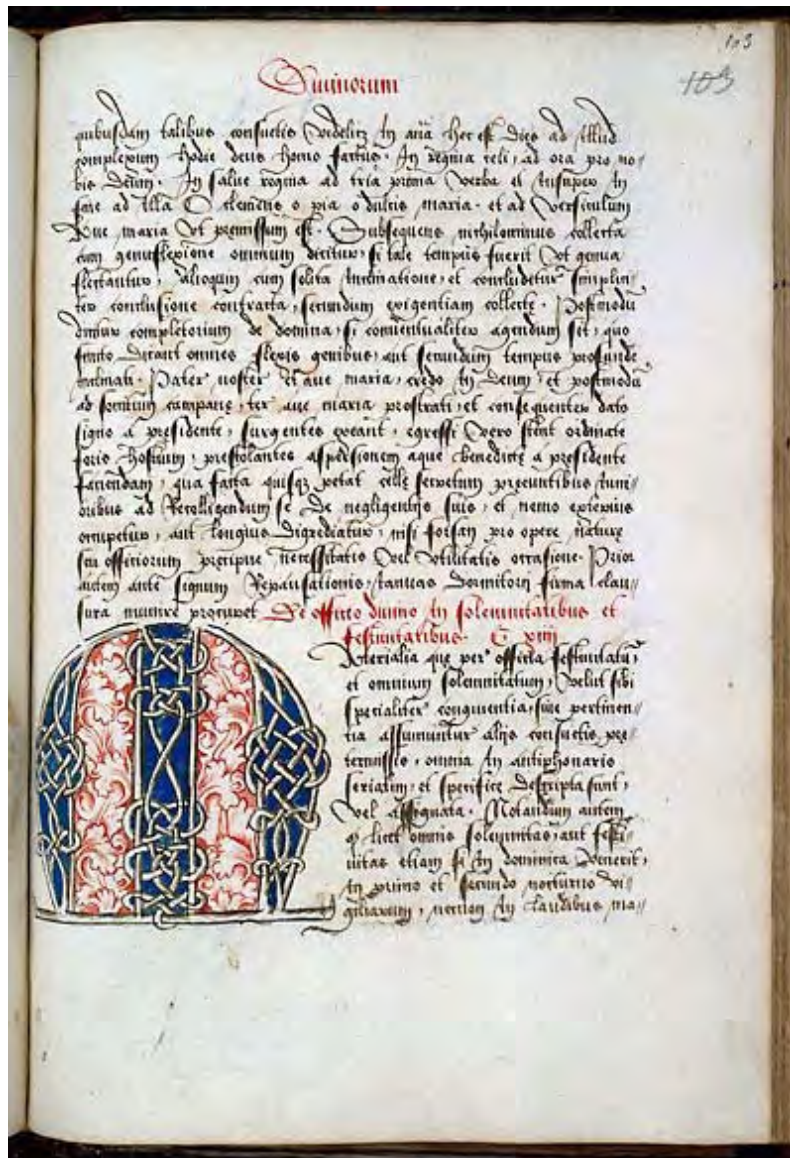 103
103
Diuinorum
quibusdam talibus consuetis Videlicet In aña Hec est Dies ad Illud
complexum hodie deus homo factus. In regina celi, ad ora pro no//
bis Deum. In salue regina ad tria prima Verba et Insuper In
fine ad Illa O clemens o pia o dulcis maria. et ad Versiculum
Aue maria Vt premissum est. Subsequens nichilominus collecta
cum genuflexione omnium dicitur, si tale tempus fuerit Vt genua
flectantur, alioquin cum solita Inclinatione, et concluditur simplici//
ter conclusione contracta, secundum exigentiam collectę. Postmodū
dicitur completorium de domina, si conuentualiter agendum sit, quo
finito Dicant omnes flexis genibus, aut secundum tempus profunde
Inclinati. Pater noster et aue maria, credo In Deum, et postmodū
ad sonitum campanę, ter aue maria prostrati, et consequenter dato
signo a presidente, surgentes exeant, egressi Vero stent ordinate
foris hostium, prestolantes aspersionem aque benedictę a presidente
faciendam, qua facta quisqz petat cellę secretum precuntibus Iuni//
oribus ad Recolligendum se De negligentijs suis, et nemo exterius
occupetur, aut longius Digrediatur, nisi forsan pro opere naturę
seu officiorum precipue necessitatis Vel Vtilitatis occasione. Prior
autem ante signum Repausationis, Ianuas Dormitorij firma clau//
sura munire procuret De officio diuino In solemnitatibus et
festiuitatibus. C xiiij
Materialia que per officia festiuitatū,
et omnium solemnitatum, Velut sibi
specialiter congruentia, siue pertinen//
tia assumuntur alijs consuetis pre//
termissis, omnia In antiphonario
seriatim, et specifice Descripta sunt,
Vel assignata. Notandum autem
q̄ licet omnis solemnitas, aut festi//
uitas etiam si In dominica Venerit,
In primo et secundo nocturno Vi//
giliarum, necnon In Laudibus ma//